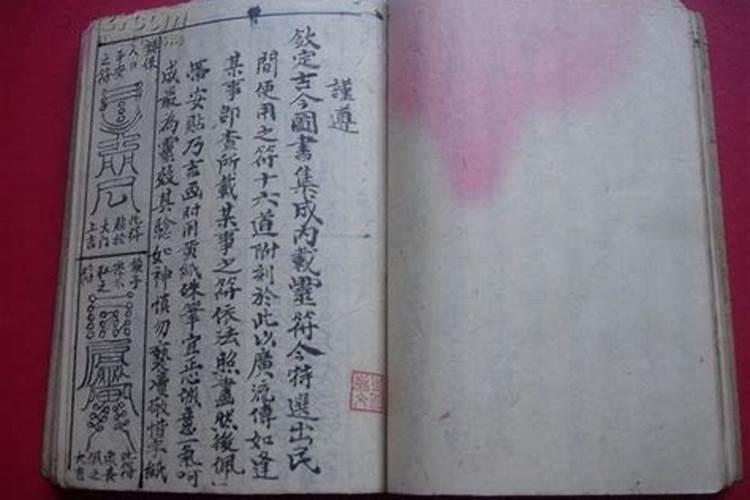 謹遵
欽定古今圖書集成內載靈符今特選出民
間使用之符十六道附刻於此以廣流傳如逢
某事即查所載某事之符依法照畫然後佩
帶安貼乃吉画时用黃紙硃筆宜正心誠意一氣呵
成最為靈效其驗如神慎勿褻瀆敬惜字紙
人口
平安
之符
此符
貼於
大門
上吉
此符
佩之
大吉